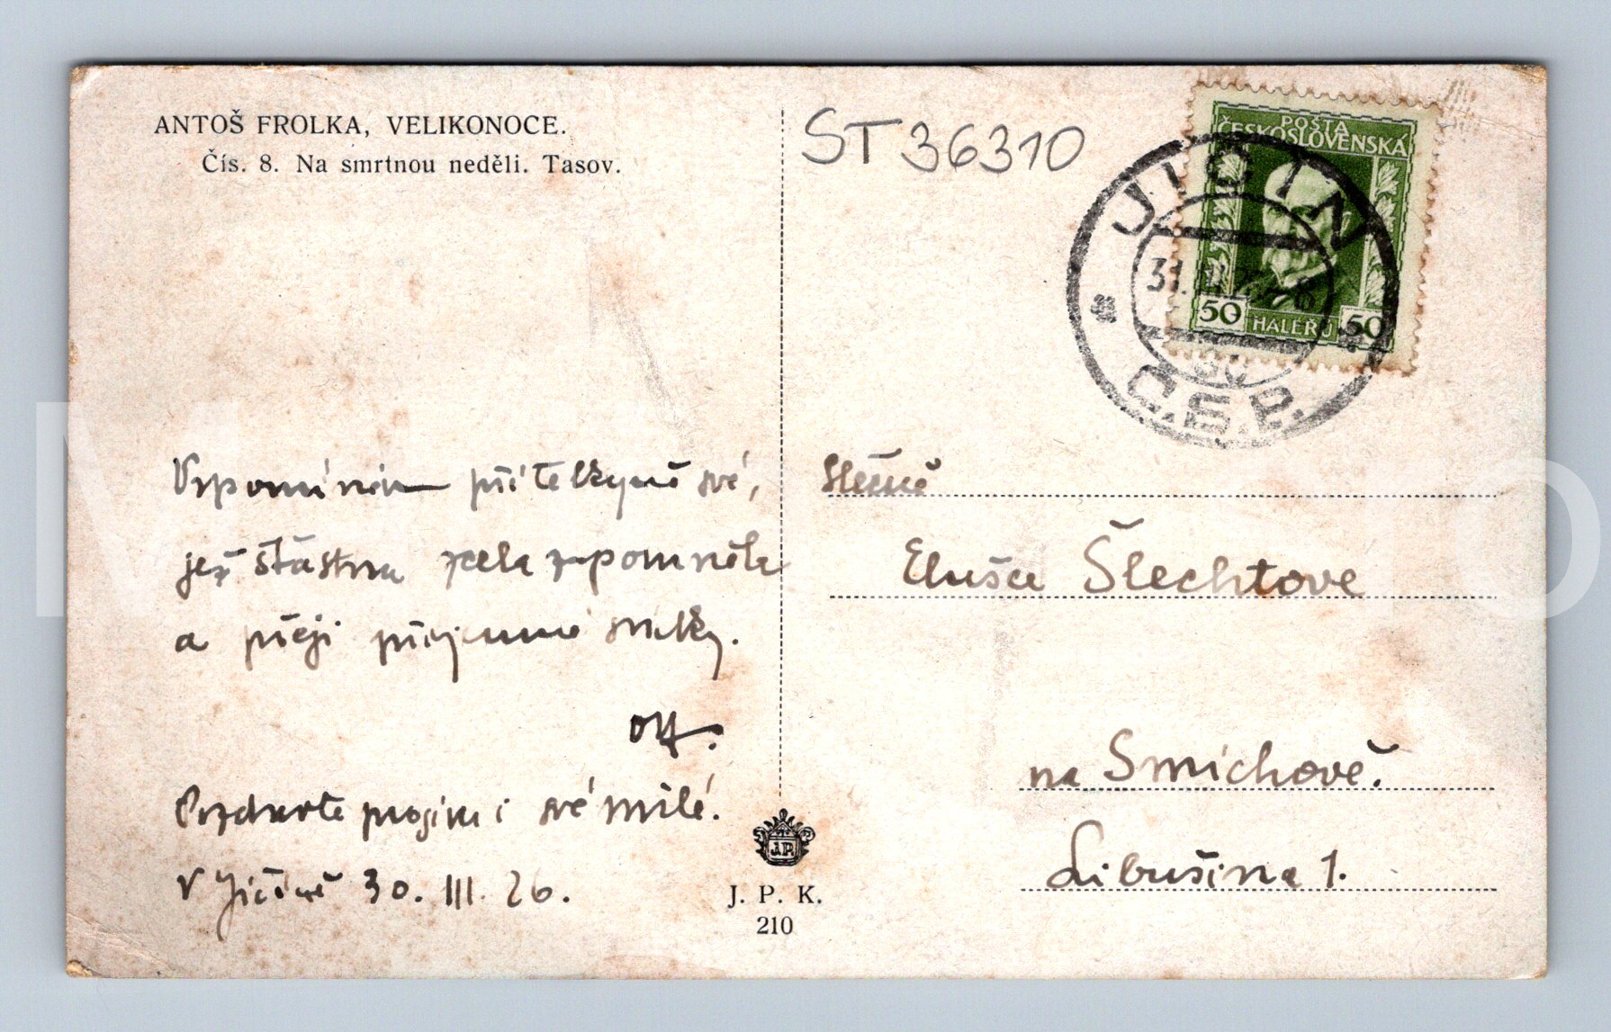 ANTOŠ FROLKA, VELIKONOCE.
Čís. 8. Na smrtnou neděli. Tasov.
ST36310
POŠTA
ČESKOSLOVENSKÁ
50 HALÉŘŮ 50
JIČÍN
31.
Č.S.P.
Vzpomínám přítelkyně své,
jež šťastna zcela zapomněla
a přeji příjemné svátky.
Pozdravte prosím i své milé.
V Jičíně 30. III. 26.
J. P. K.
210
Slečně
Elušce Šlechtove
na Smíchově.
Libušina 1.